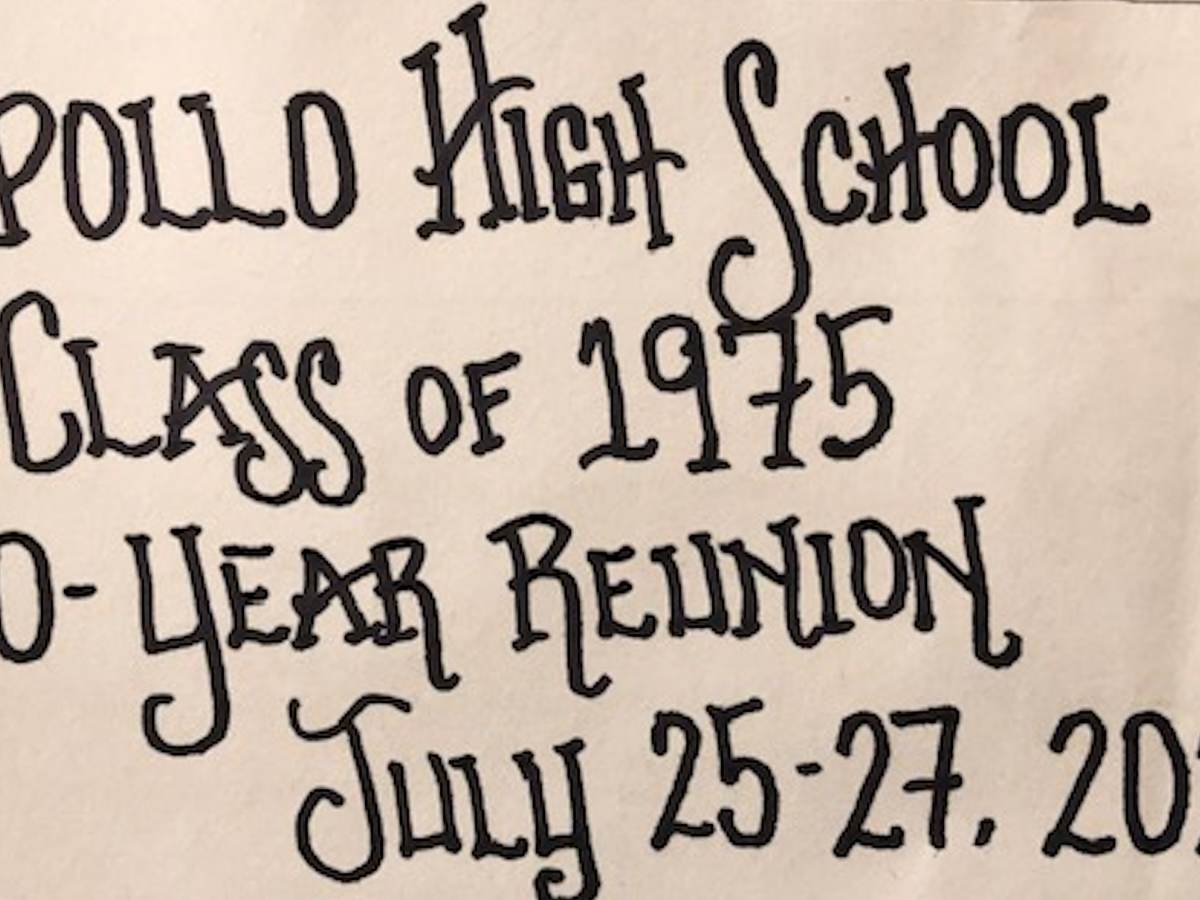 POLLO HIGH SCHOOL
CLASS OF 1975
0-YEAR REUNION
JULY 25-27, 20